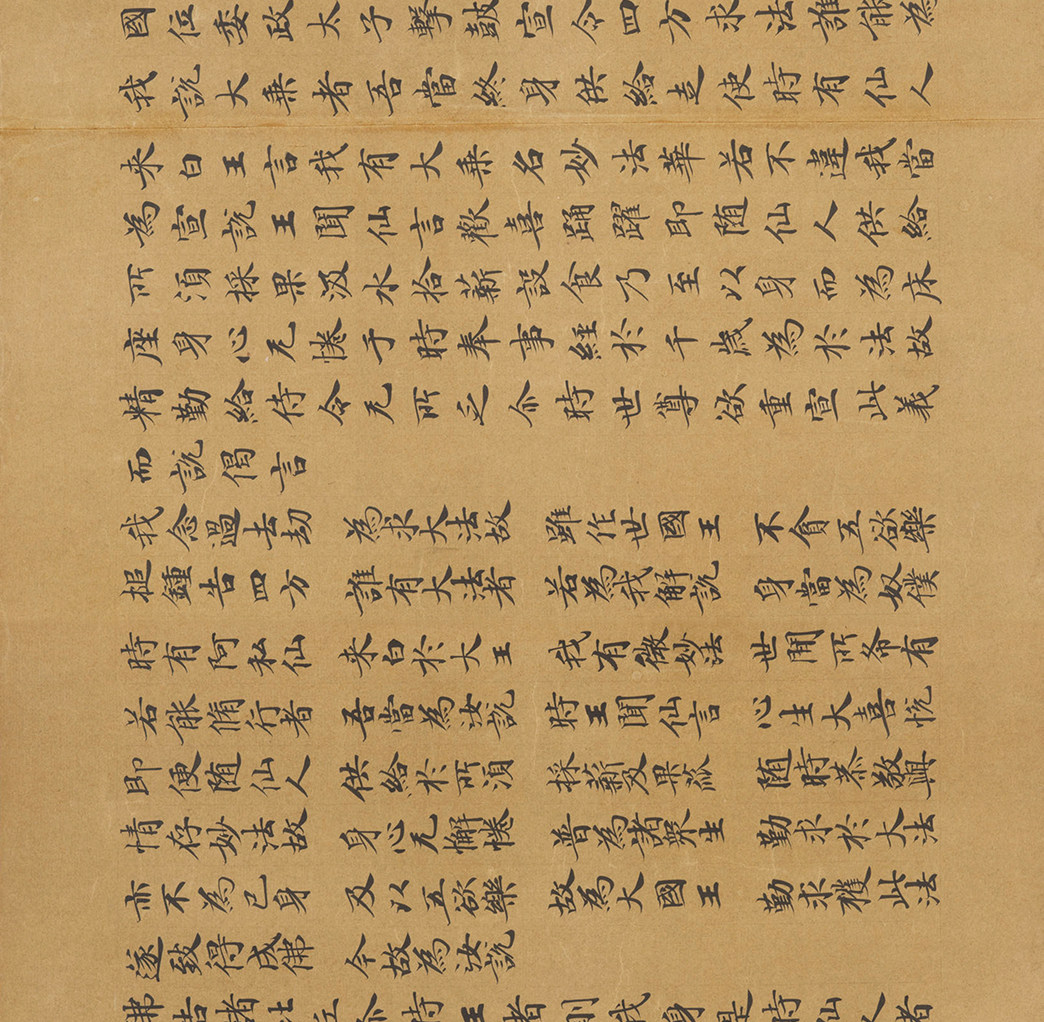 國位委政太子擊鼓宣令四方求法誰能為
我説大乗者吾當終身供給走使時有仙人
来白王言我有大乗名妙法華若不違我當
為宣説王聞仙言歡喜踊躍即随仙人供給
所湏採果汲水拾薪設食乃至以身而為床
座身心无惓于時奉事經於千歳為於法故
精勤給侍令无所乏尒時世尊欲重宣此義
而説偈言
我念過去劫　為求大法故　雖作世國王　不貪五欲樂
槌鍾告四方　誰有大法者　若為我解説　身當為奴僕
時有阿私仙　来白於大王　我有微妙法　世間所希有
若能脩行者　吾當為汝説　時王聞仙言　心生大喜悦
即便随仙人　供給於所湏　採薪及果蓏　随時恭敬與
情存妙法故　身心无懈惓　普為諸衆生　勤求於大法
亦不為己身　及以五欲樂　故為大國王　勤求獲此法
遂致得成佛　今故為汝説
佛告諸比丘尒時王者則我身是時仙人者